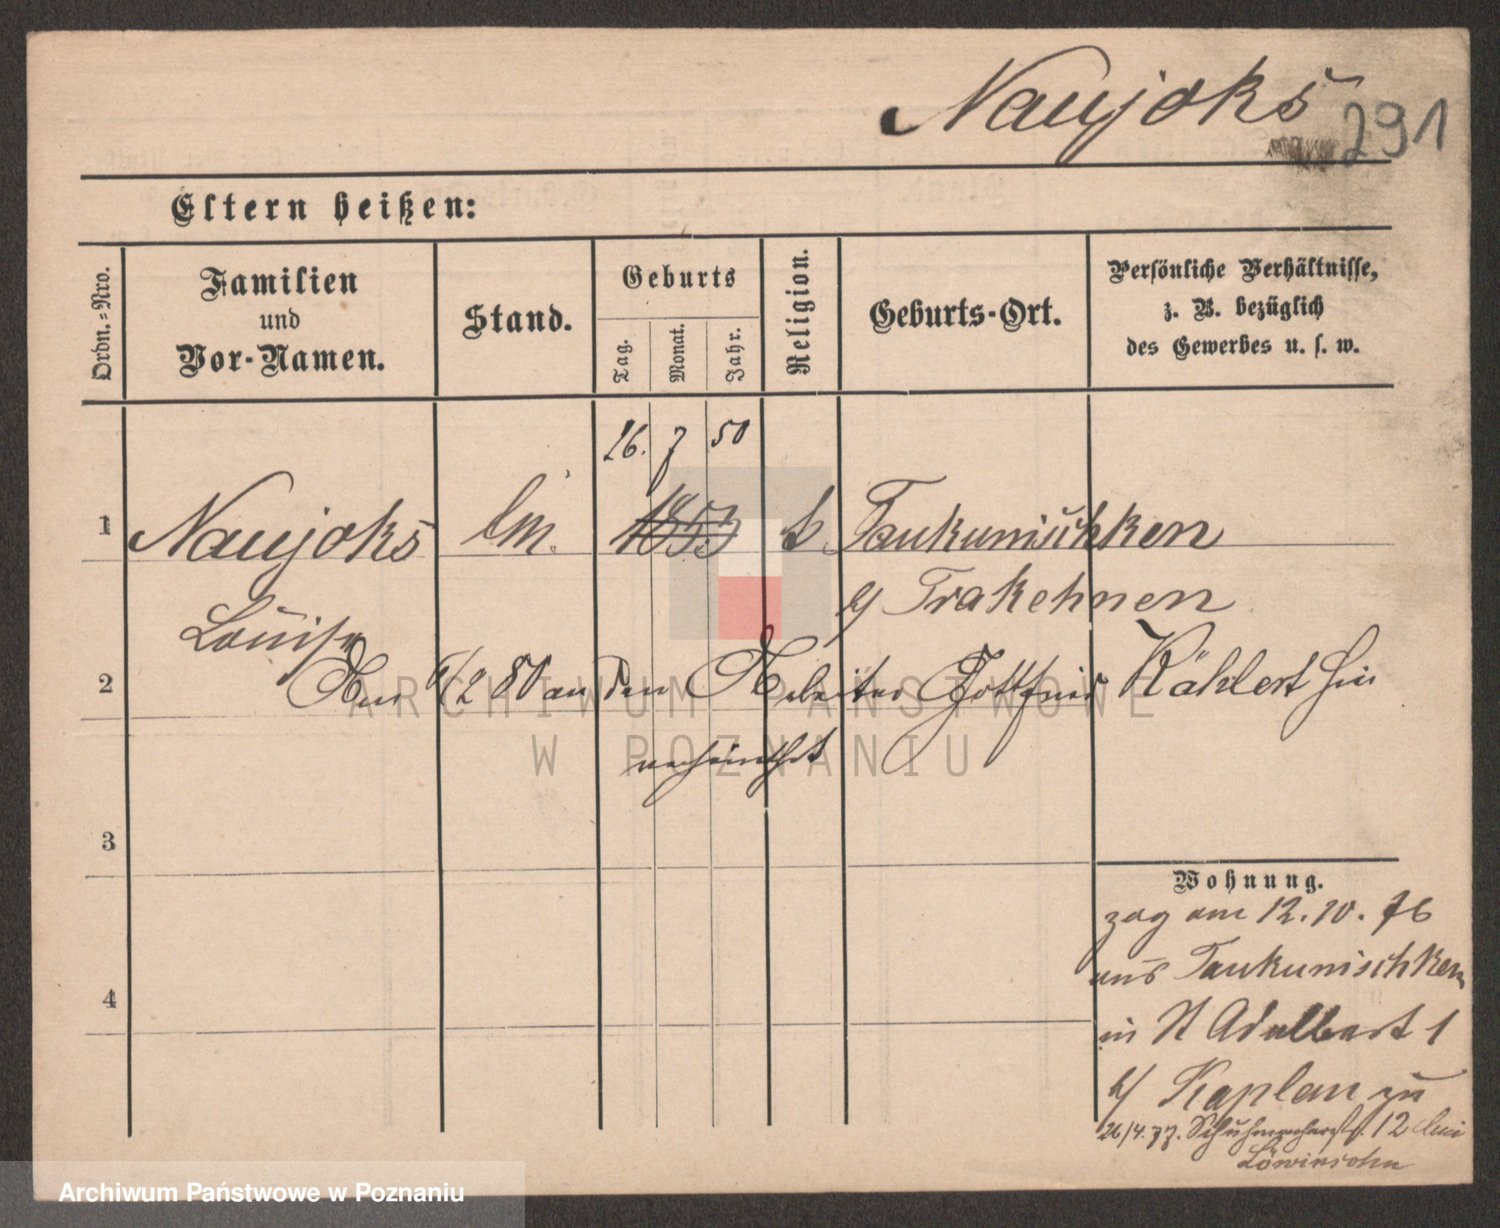 Naujoks
291
Eltern heißen:
Ordn.-Nro.
Familien
und
Vor-Namen.
Stand.
Geburts
Tag.
Monat.
Jahr.
Religion.
Geburts-Ort.
Persönliche Verhältnisse,
z. B. bezüglich
des Gewerbes u. s. w.
26. 7 50
1 Naujoks 1853 Taukunischken
Louise b/ Trakehnen
2 80 an den Arbeiter Gottfried Kählert hier
verheirathet
3
4
Wohnung.
zog am 12.10.76
aus Taukunischken
in St Adalbert 1
b/ Kaplan zu
26/4.77. Schuhmacherstr. 12 bei
Löwinsohn
ARCHIWUM PAŃSTWOWE
W POZNANIU
Archiwum Państwowe w Poznaniu